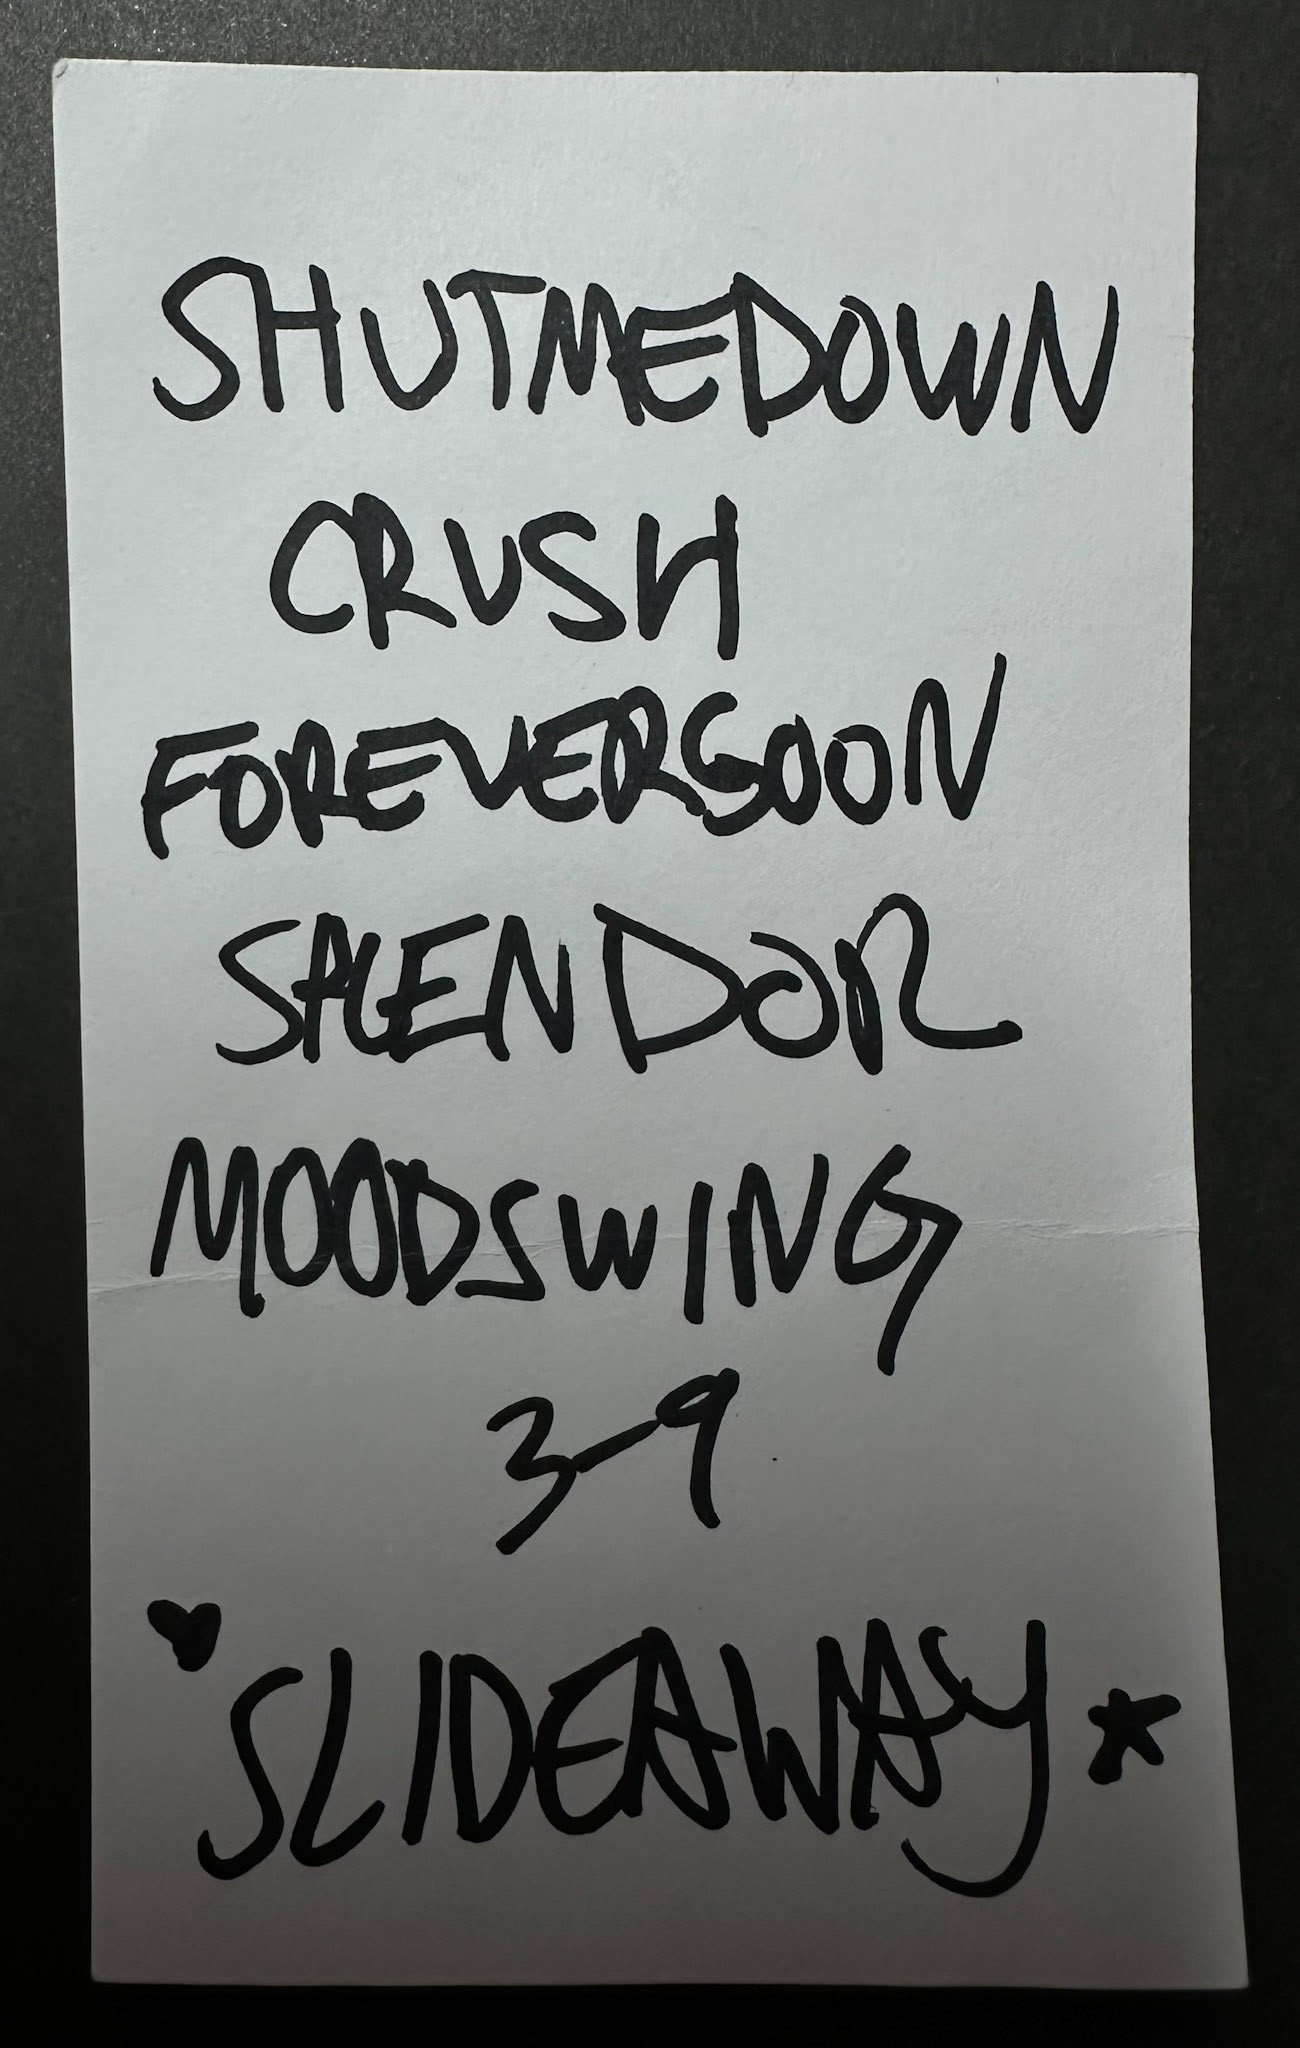 SHUTMEDOWN
CRUSH
FOREVERSOON
SPLENDOR
MOODSWING
3-9
♥ SLIDEAWAY ★